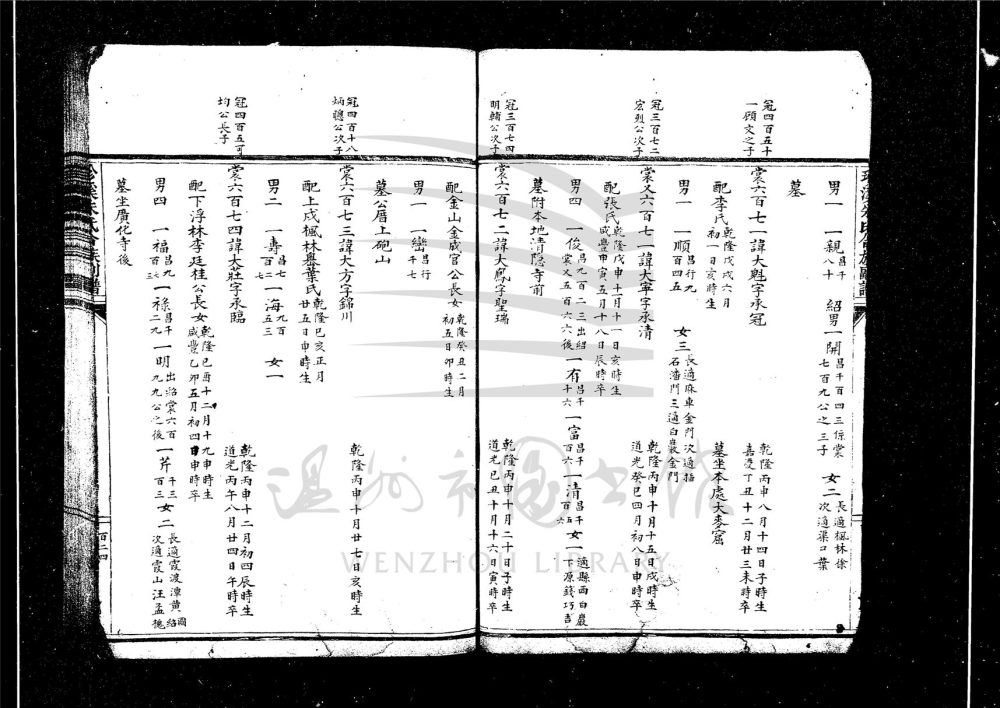 男一 一親昌千八十 紹男一開昌千百四三係棠七百九公之三子 女二長適楓林徐次適渠口葉
墓
冠四百五十一願文之子
裳六百七一諱大魁字承冠 乾隆丙申八月十四日子時生嘉慶丁丑十二月廿三未時卒
配李氏乾隆戊戌六月初一日亥時生 墓坐本處大麥窟
男一 一順昌行九百四五 女三長適麻車金門次適 石潘門三適白巖金門
冠三百七二宏烈公次子
裳又六百七一諱大寧字承清 乾隆丙申十月十五日戌時生道光癸巳四月初八日申時卒
配張氏乾隆戊申十月十一日亥時生咸豐甲寅五月十八日辰時卒
男四 一俊昌九百二三出紹裳又五百六六後 一有昌千十六 一富昌千百六 一清昌千百 女一適縣西白巖下原錢巧吉
墓附本地清隱寺前
冠三百七四明輔公次子
裳六百七二諱大鳳字聖瑞 乾隆丙申十月二十日子時生道光己丑十月十六日寅時卒
配金山金咸官公長女乾隆癸丑二月初五日卯時生
男一 一巒昌行千七
墓公厝上砲山
冠四百十八炳聰公次子
裳六百七三諱大方字錦川 乾隆丙申十月廿七日亥時生
配上戍楓林舉葉氏乾隆己亥正月廿五日申時生
男二 一壽昌七百二七 一海九百五三 女一
冠四百五可均公長子
裳六百七四諱大莊字承臨 乾隆丙申十二月初四辰時生道光丙午八月廿四日午時卒
配下浮林李廷桂公長女乾隆己酉十二月十九申時生咸豐乙卯五月初四日申時卒
男四 一福昌九百三七 一祿昌千二九 一明出紹裳六百九九公之後 一芹千三百三 女二長適霞渡潭黃紹國次適霞山汪孟槐
墓坐廣化寺後
百二四
WENZHOU LIBRARY